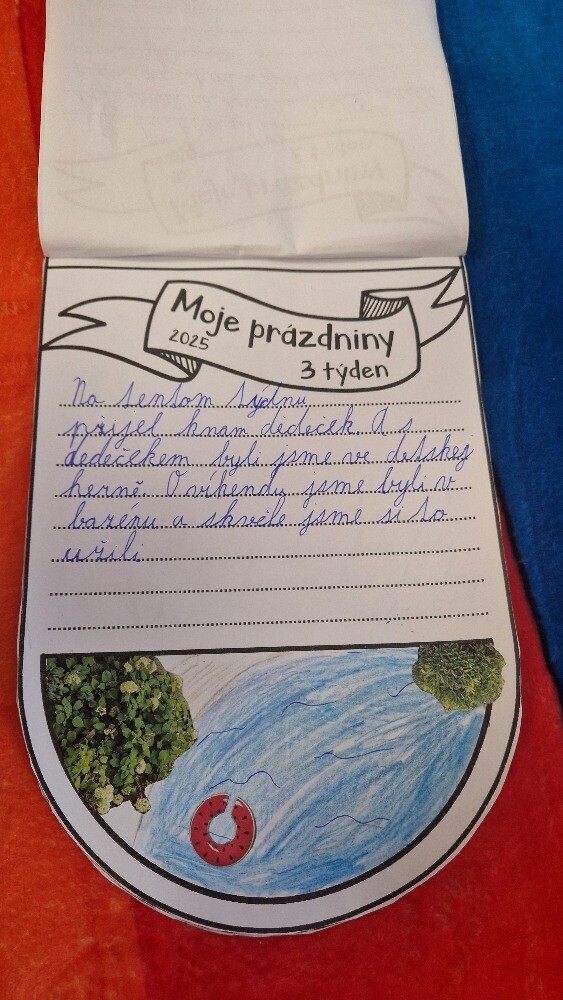 Moje prázdniny
2025
3 týden
Na tentom týdnu
přijel knam dedeček. A s
dedečekem byli jsme ve detskej
herně. O víkendu jsme byli v
bazénu a skvěle jsme si to
užili